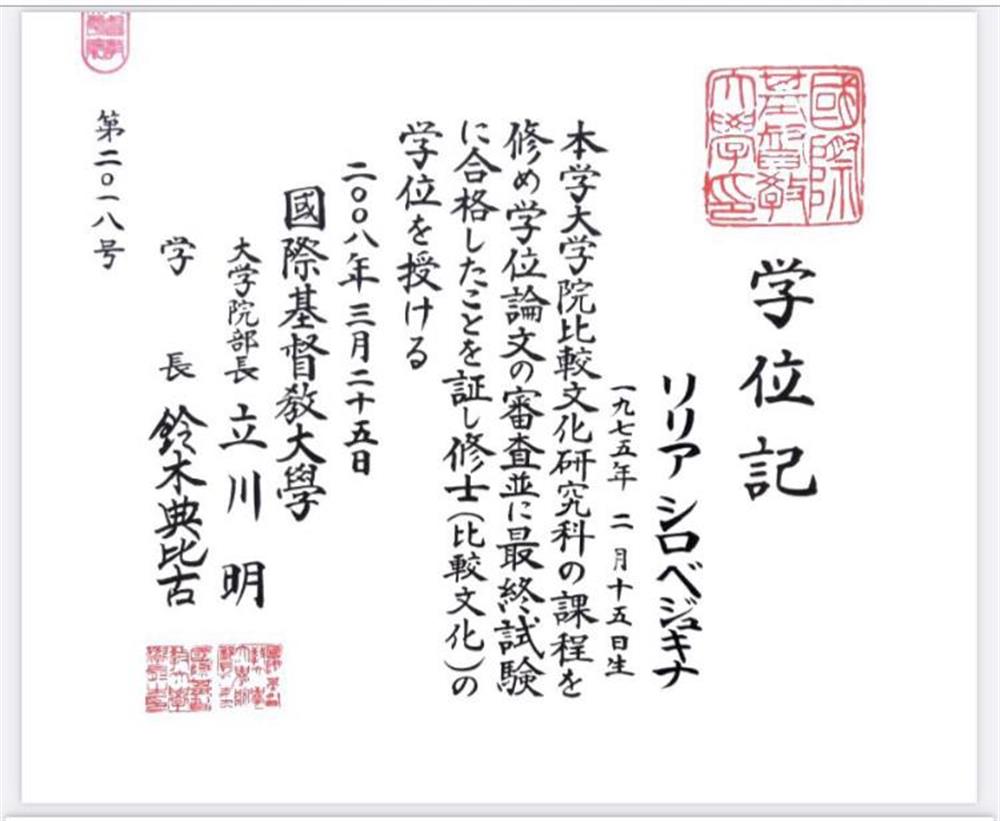 國際
基督教
大學印
学位記
リリア シロベジュキナ
一九七五年 二月十五日生
本学大学院比較文化研究科の課程を
修め学位論文の審査並に最終試験
に合格したことを証し修士(比較文化)の
学位を授ける
二〇〇八年三月二十五日
國際基督教大學
大学院部長 立川 明
学 長 鈴木典比古
第二〇一八号